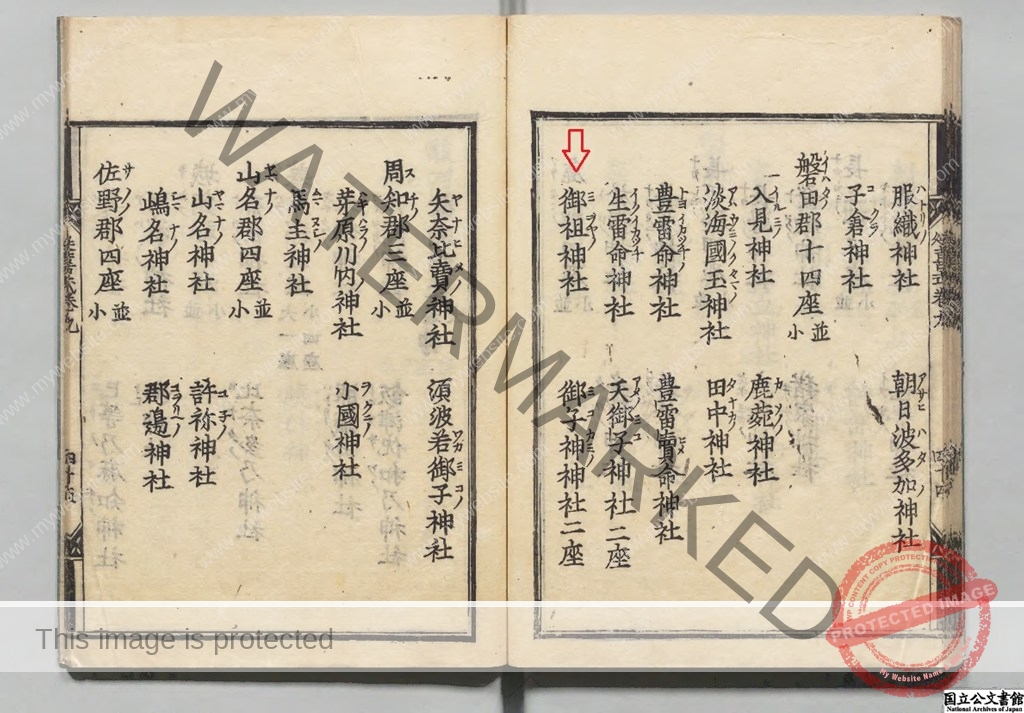 服織神社 朝日波多加神社
子倉神社
磐田郡十四座 並小
入見神社 鹿苑神社
淡海國玉神社 田中神社
豊雷命神社 豊雷賣命神社
生雷命神社 天御子神社二座
御祖神社 御子神神社二座
矢奈比賣神社 須波若御子神社
周知郡三座 並小
芽原川内神社 小國神社
馬主神社
山名郡四座 並小
山名神社 許祢神社
嶋名神社 郡邉神社
佐野郡四座 並小
WATERMARKED
This image is protected
CONTENT COPY PROTECTION
PROTECTED IMAGE
My Website Name
国立公文書館
National Archives of Japan